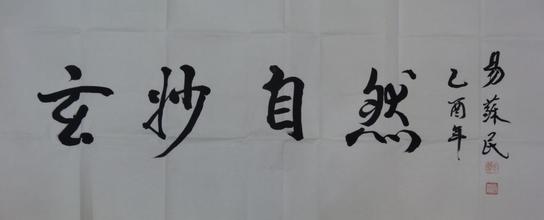 玄妙自然
乙酉年
易蘇民